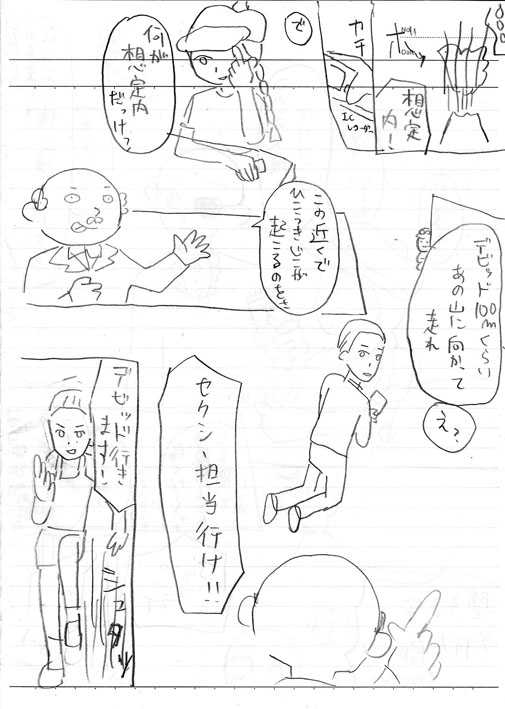 想定
内!
カチ
ICレコーダー
で
何が
想定内
だっけ?
この近くで
ひこうきじこが
起こるのをさ
デビッド100mくらい
あの山に向かって
走れ
えっ
セクシー担当行け!!
デビッド行き
ます!
シュタッ